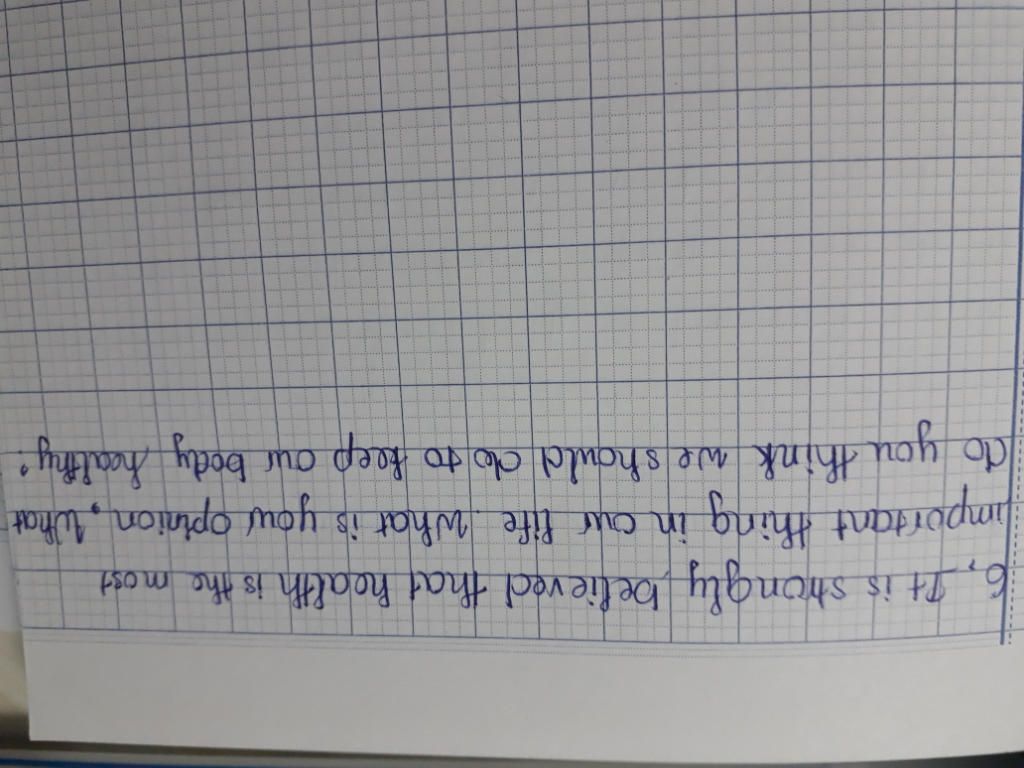 6, It is strongly believed that health is the most
important thing in our life. What is your opinion, What
do you think we should do to keep our body healthy?